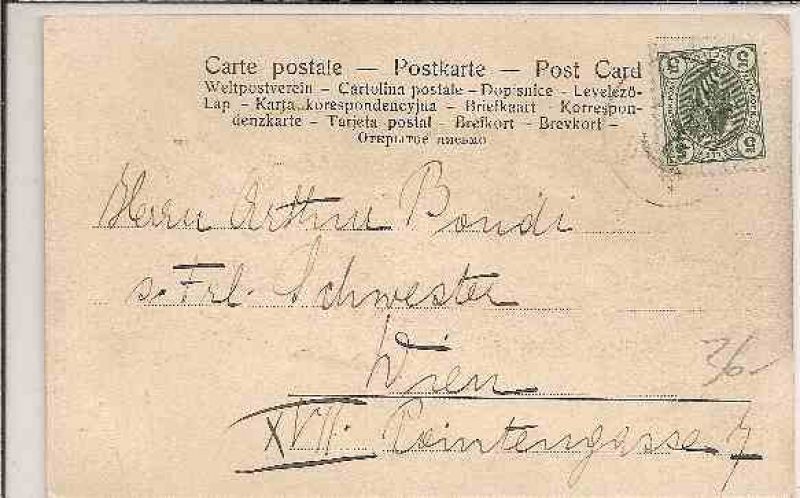 Carte postale — Postkarte — Post Card
Weltpostverein – Cartolina postale – Dopisnice – Levelező-
Lap – Karta korespondencyjna – Briefkaart – Korrespon-
denzkarte – Tarjeta postal – Brefkort – Brevkort –
Открытое письмо
5 5
5 5
Herrn Arthur Bondi
s. Frl. Schwester
Wien
XVII. Pointengasse 7
26-